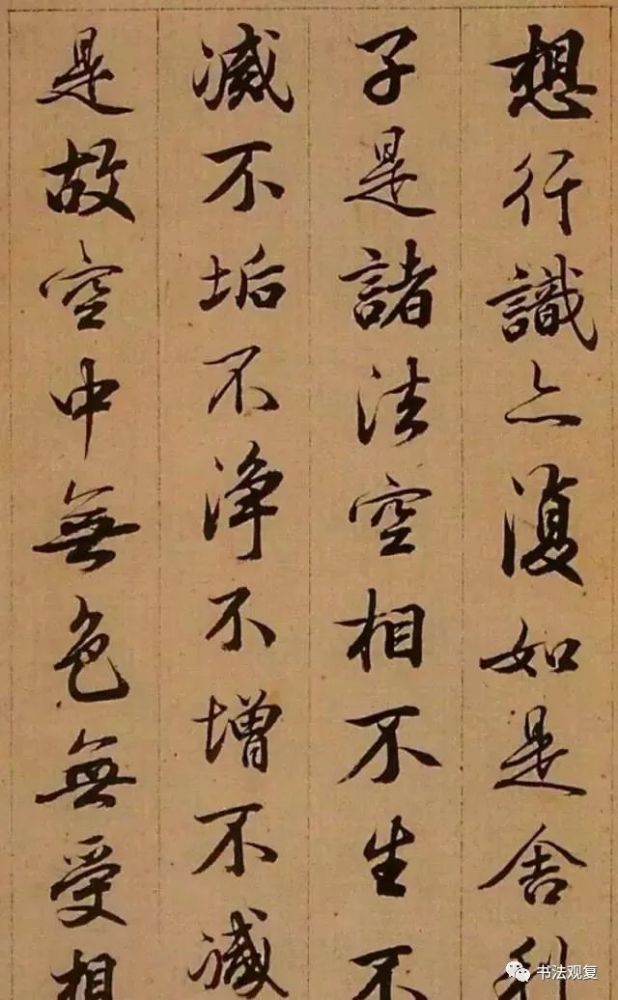 想行識亦復如是舍利
子是諸法空相不生不
滅不垢不淨不增不減
是故空中無色無受想
书法观复